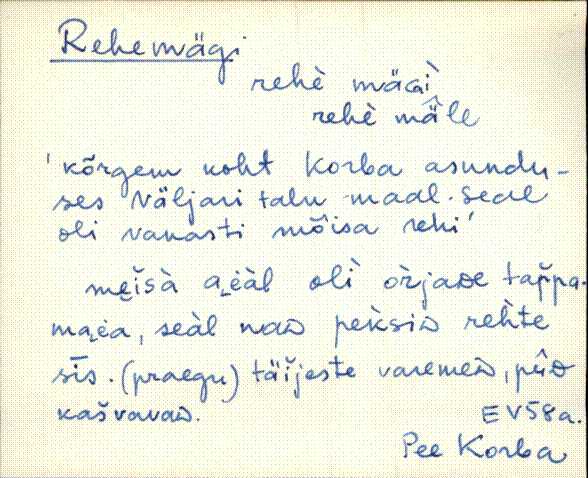 Rehemägi
rehè mäɢì
rehè mä̂le
'kõrgem koht Korba asundu-
ses Väljari talu maal. Seal
oli vanasti mõisa rehi'
mȩĭsà aɩ̯èàl olì òrjaᴅe tap̆pa-
maɩ̯èa, seàl naᴅ pèksiᴅ rehte
sīs. (praegu) täĭjeste varemeᴅ, pûᴅ
kašvavaᴅ.
EV58a.
Pee Korba